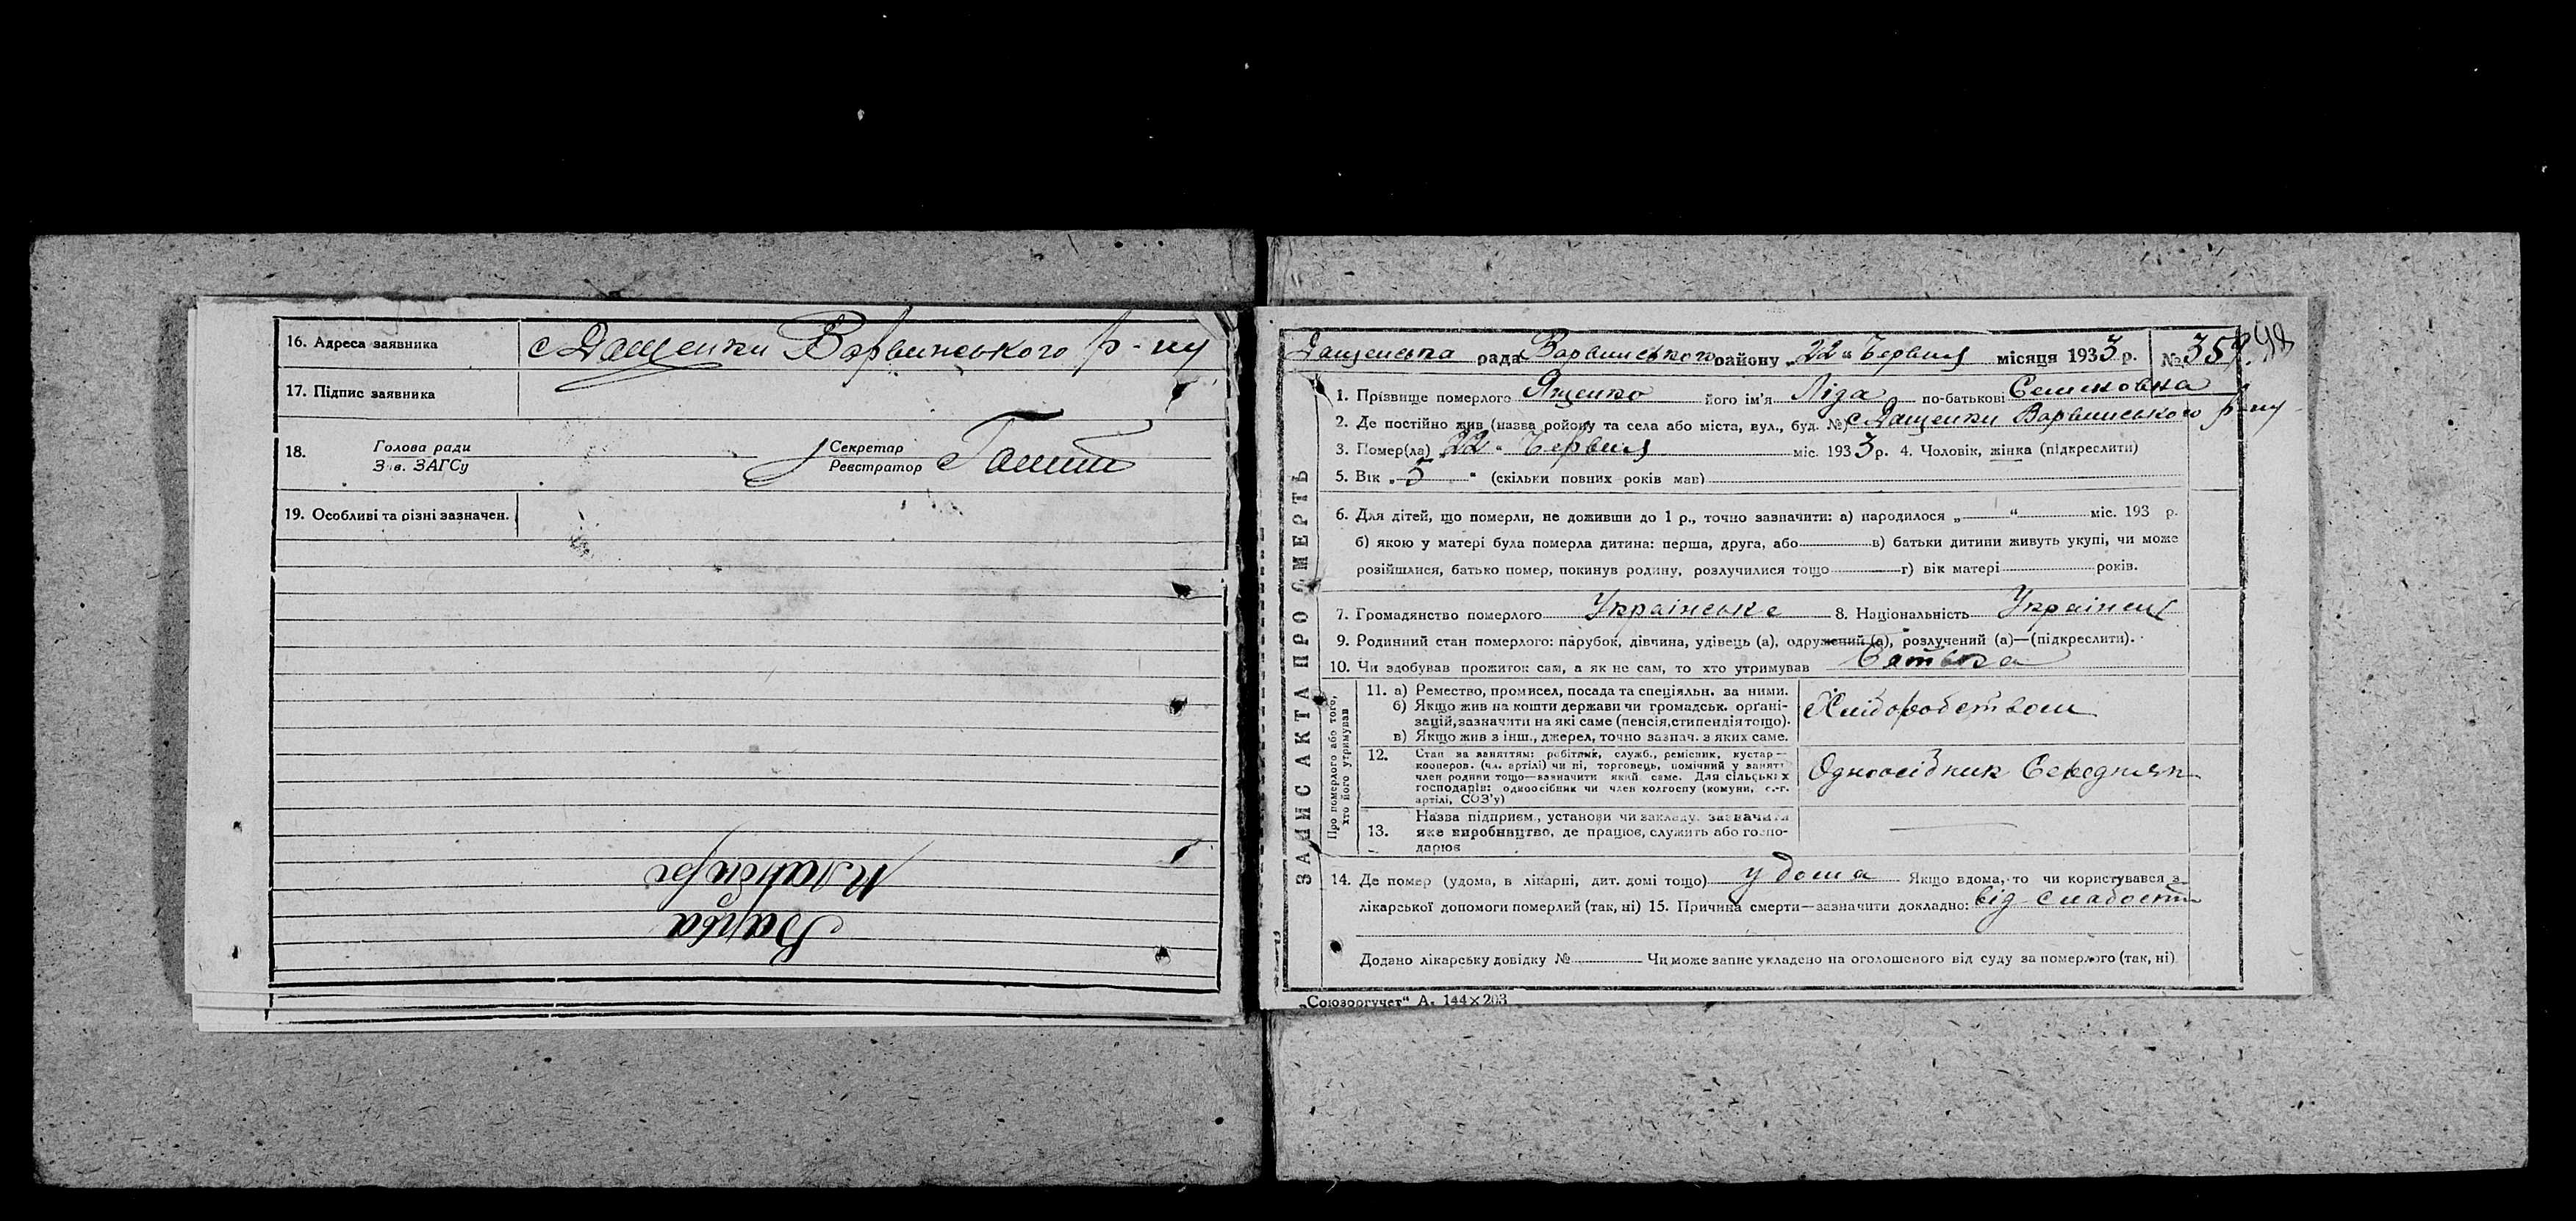 16. Адреса заявника с Дащенки Варвинського р-ну
17. Підпис заявника
18. Голова ради Секретар
Зав. ЗАГСу Реєстратор
19. Особливі та різні зазначен.
Варва
Дащенська рада Варвинського району „22“ Червня місяця 1933 р. № 359
1. Прізвище померлого Ященко його ім'я Ліда по-батькові Семковна
2. Де постійно жив (назва району та села або міста, вул., буд. №) с Дащенки Варвинського р-ну
3. Помер(ла) „22“ Червня міс. 1933 р. 4. Чоловік, жінка (підкреслити)
5. Вік „5“ (скільки повних років мав)
6. Для дітей, що померли, не доживши до 1 р., точно зазначити: а) народилося „ “ міс. 193 р.
б) якою у матері була померла дитина: перша, друга, або в) батьки дитини живуть укупі, чи може
розійшлися, батько помер, покинув родину, розлучилися тощо г) вік матері років.
7. Громадянство померлого Українське 8. Національність Украінец
9. Родинний стан померлого: парубок, дівчина, удівець (а), одружений (а), розлучений (а)—(підкреслити).
10. Чи здобував прожиток сам, а як не сам, то хто утримував Батько
ЗАПИС АКТА ПРО СМЕРТЬ
Про померлого або того,
хто його утримував
11. а) Ремество, промисел, посада та спеціяльн. за ними.
б) Якщо жив на кошти держави чи громадськ. орґані-
зацій, зазначити на які саме (пенсія, стипендія тощо).
в) Якщо жив з інш., джерел, точно зазнач. з яких саме.
Хліборобством
12. Стан за заняттям: робітник, служб., ремісник, кустар—
кооперов. (чл. артілі) чи ні, торговець, помічний у занятт
член родини тощо—зазначити який саме. Для сільських
господарів: одноосібник чи член колгоспу (комуни, с.-г.
артілі, СОЗ'у)
Одноосібник Середняк
13. Назва підприєм., установи чи закладу, зазначити
яке виробництво, де працює, служить або госпо-
дарює
14. Де помер (удома, в лікарні, дит. домі тощо) у дома Якщо вдома, то чи користувався з
лікарської допомоги померлий (так, ні) 15. Причина смерти—зазначити докладно: від слабости
Додано лікарську довідку № Чи може запис укладено на оголошеного від суду за померлого (так, ні)
„Союзоргучет“ А. 144×203